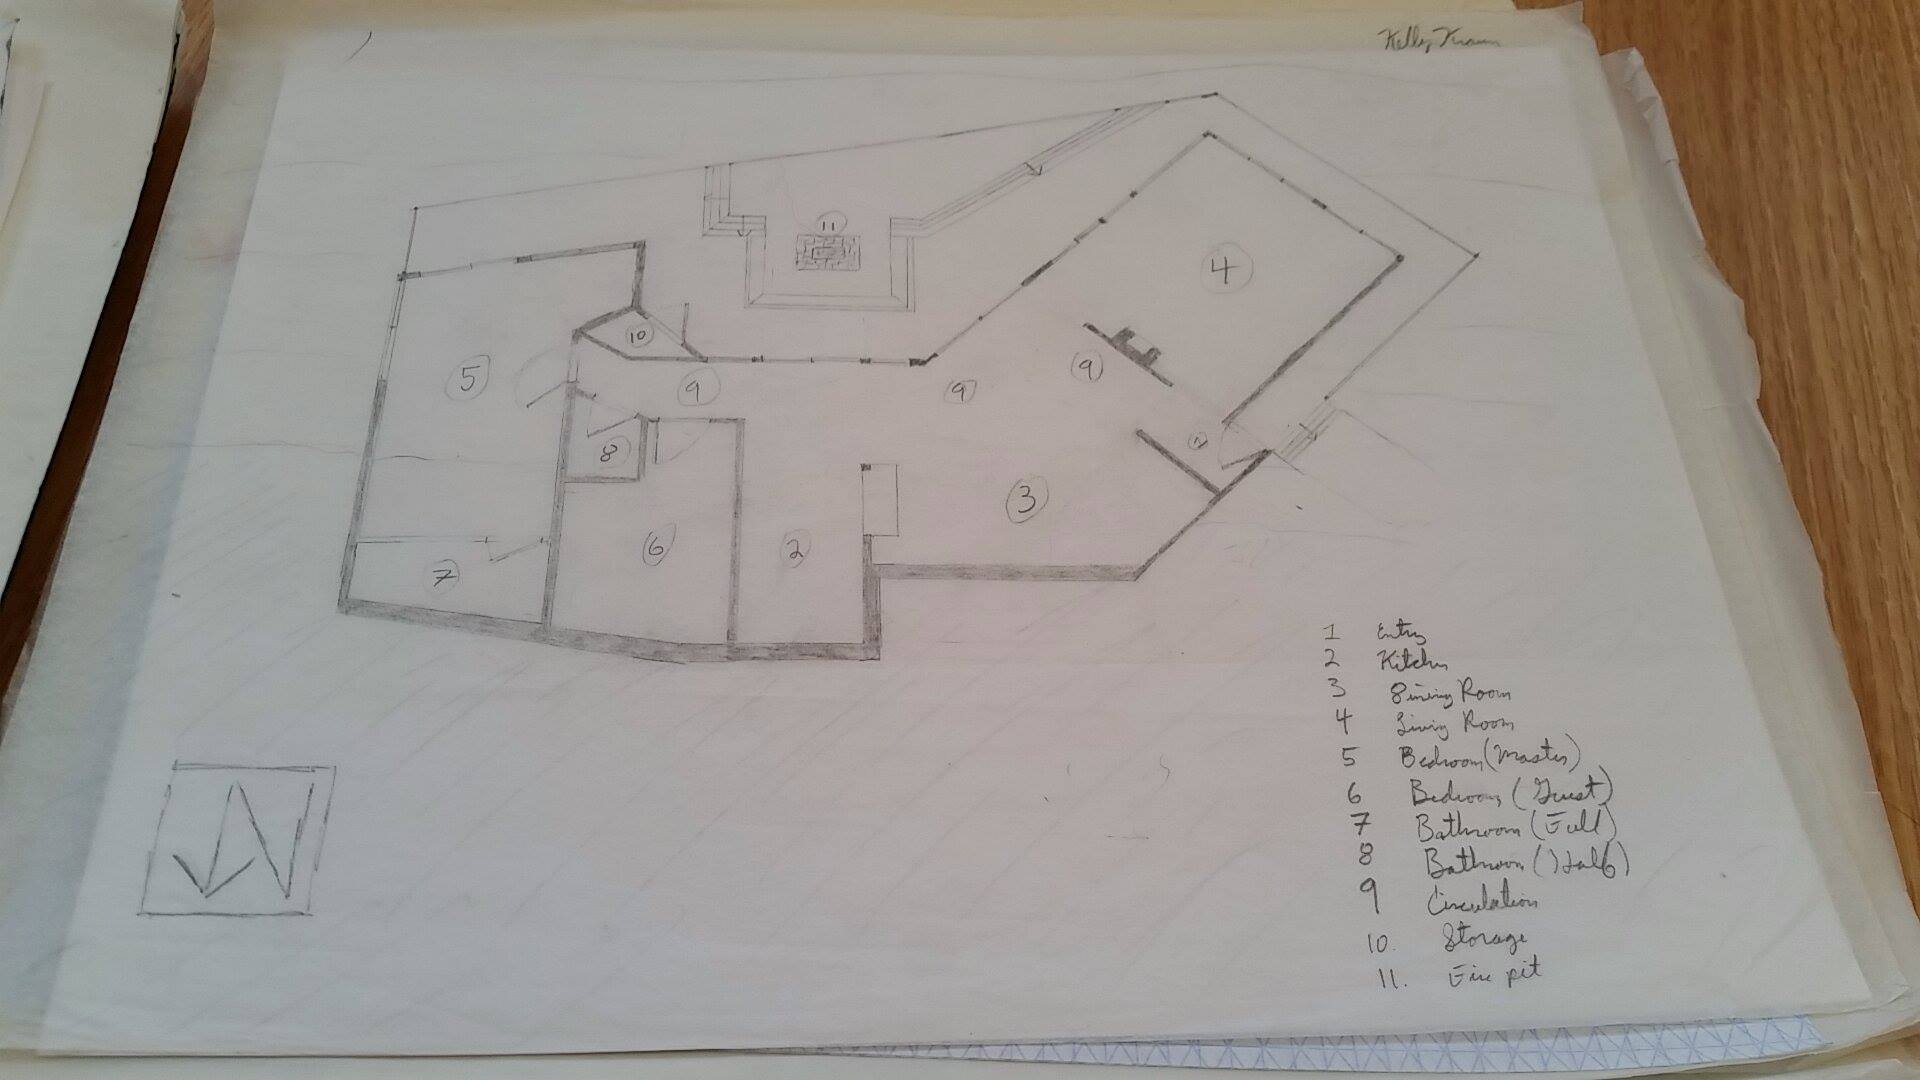 Kelly
11
4
10
5
9
9
9
8
1
3
6
2
7
1 Entry
2 Kitchen
3 Dining Room
4 Living Room
5 Bedroom (Master)
6 Bedroom (Guest)
7 Bathroom (Full)
8 Bathroom (Half)
9 Circulation
10. Storage
11. Fire pit
N